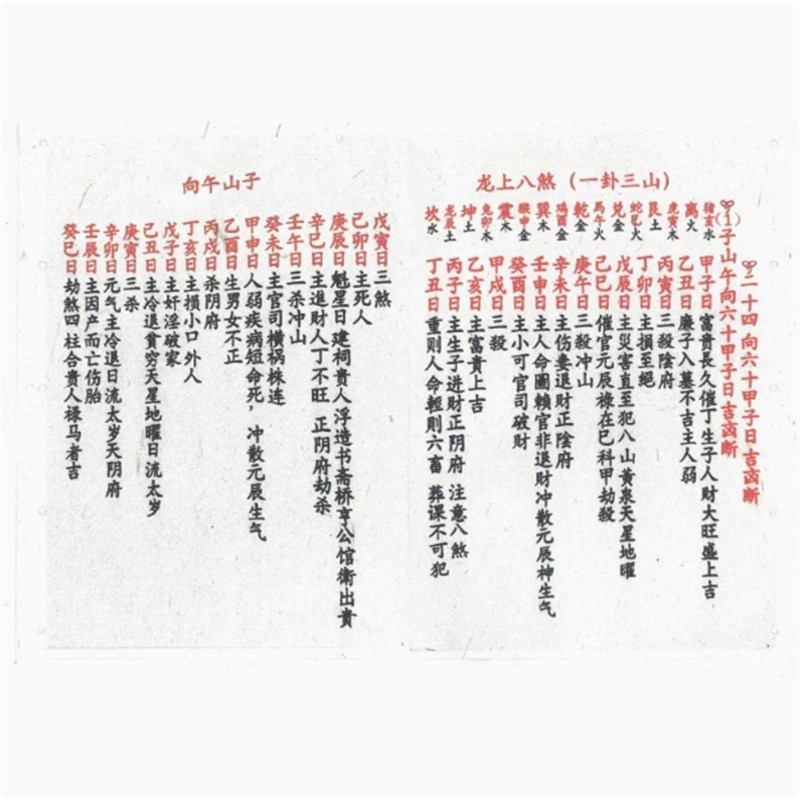 龙上八煞（一卦三山）
二十四向六十甲子日吉凶断
(1)子山午向六十甲子日吉凶断
猪亥水
离火
虎寅木
艮土
蛇巳火
兑金
马午火
乾金
鸡酉金
巽木
猴申金
震木
兔卯木
坤土
龙辰土
坎水
甲子日富貴長久催丁生子人财大旺盛上吉
乙丑日廉子入墓不吉主人弱
丙寅日三殺陰府
丁卯日主損至絕
戊辰日主災害直至犯八山黄泉天星地曜
己巳日催官元辰禄在巳科甲劫殺
庚午日三殺冲山
辛未日主伤妻退财正陰府
壬申日主人命圖賴官非退财冲散元辰神生气
癸酉日主小可官司破财
甲戌日三殺
乙亥日主富貴上吉
丙子日主生子进财正阴府 注意八煞
丁丑日重则人命輕則六畜 葬课不可犯
子山午向
戊寅日三煞
己卯日主死人
庚辰日魁星日建祠貴人浮造书斋桥亭公馆衛出貴
辛巳日主進財人丁不旺 正阴府劫杀
壬午日三杀冲山
癸未日主官司横祸株连
甲申日人弱疾病短命死，冲散元辰生气
乙酉日生男女不正
丙戌日杀阴府
丁亥日主損小口外人
戊子日主奸淫破家
己丑日主冷退貧穷天星地曜日流太岁
庚寅日三杀
辛卯日元气主冷退日流太岁天阴府
壬辰日主因产而亡伤胎
癸巳日劫煞四柱合贵人禄马者吉